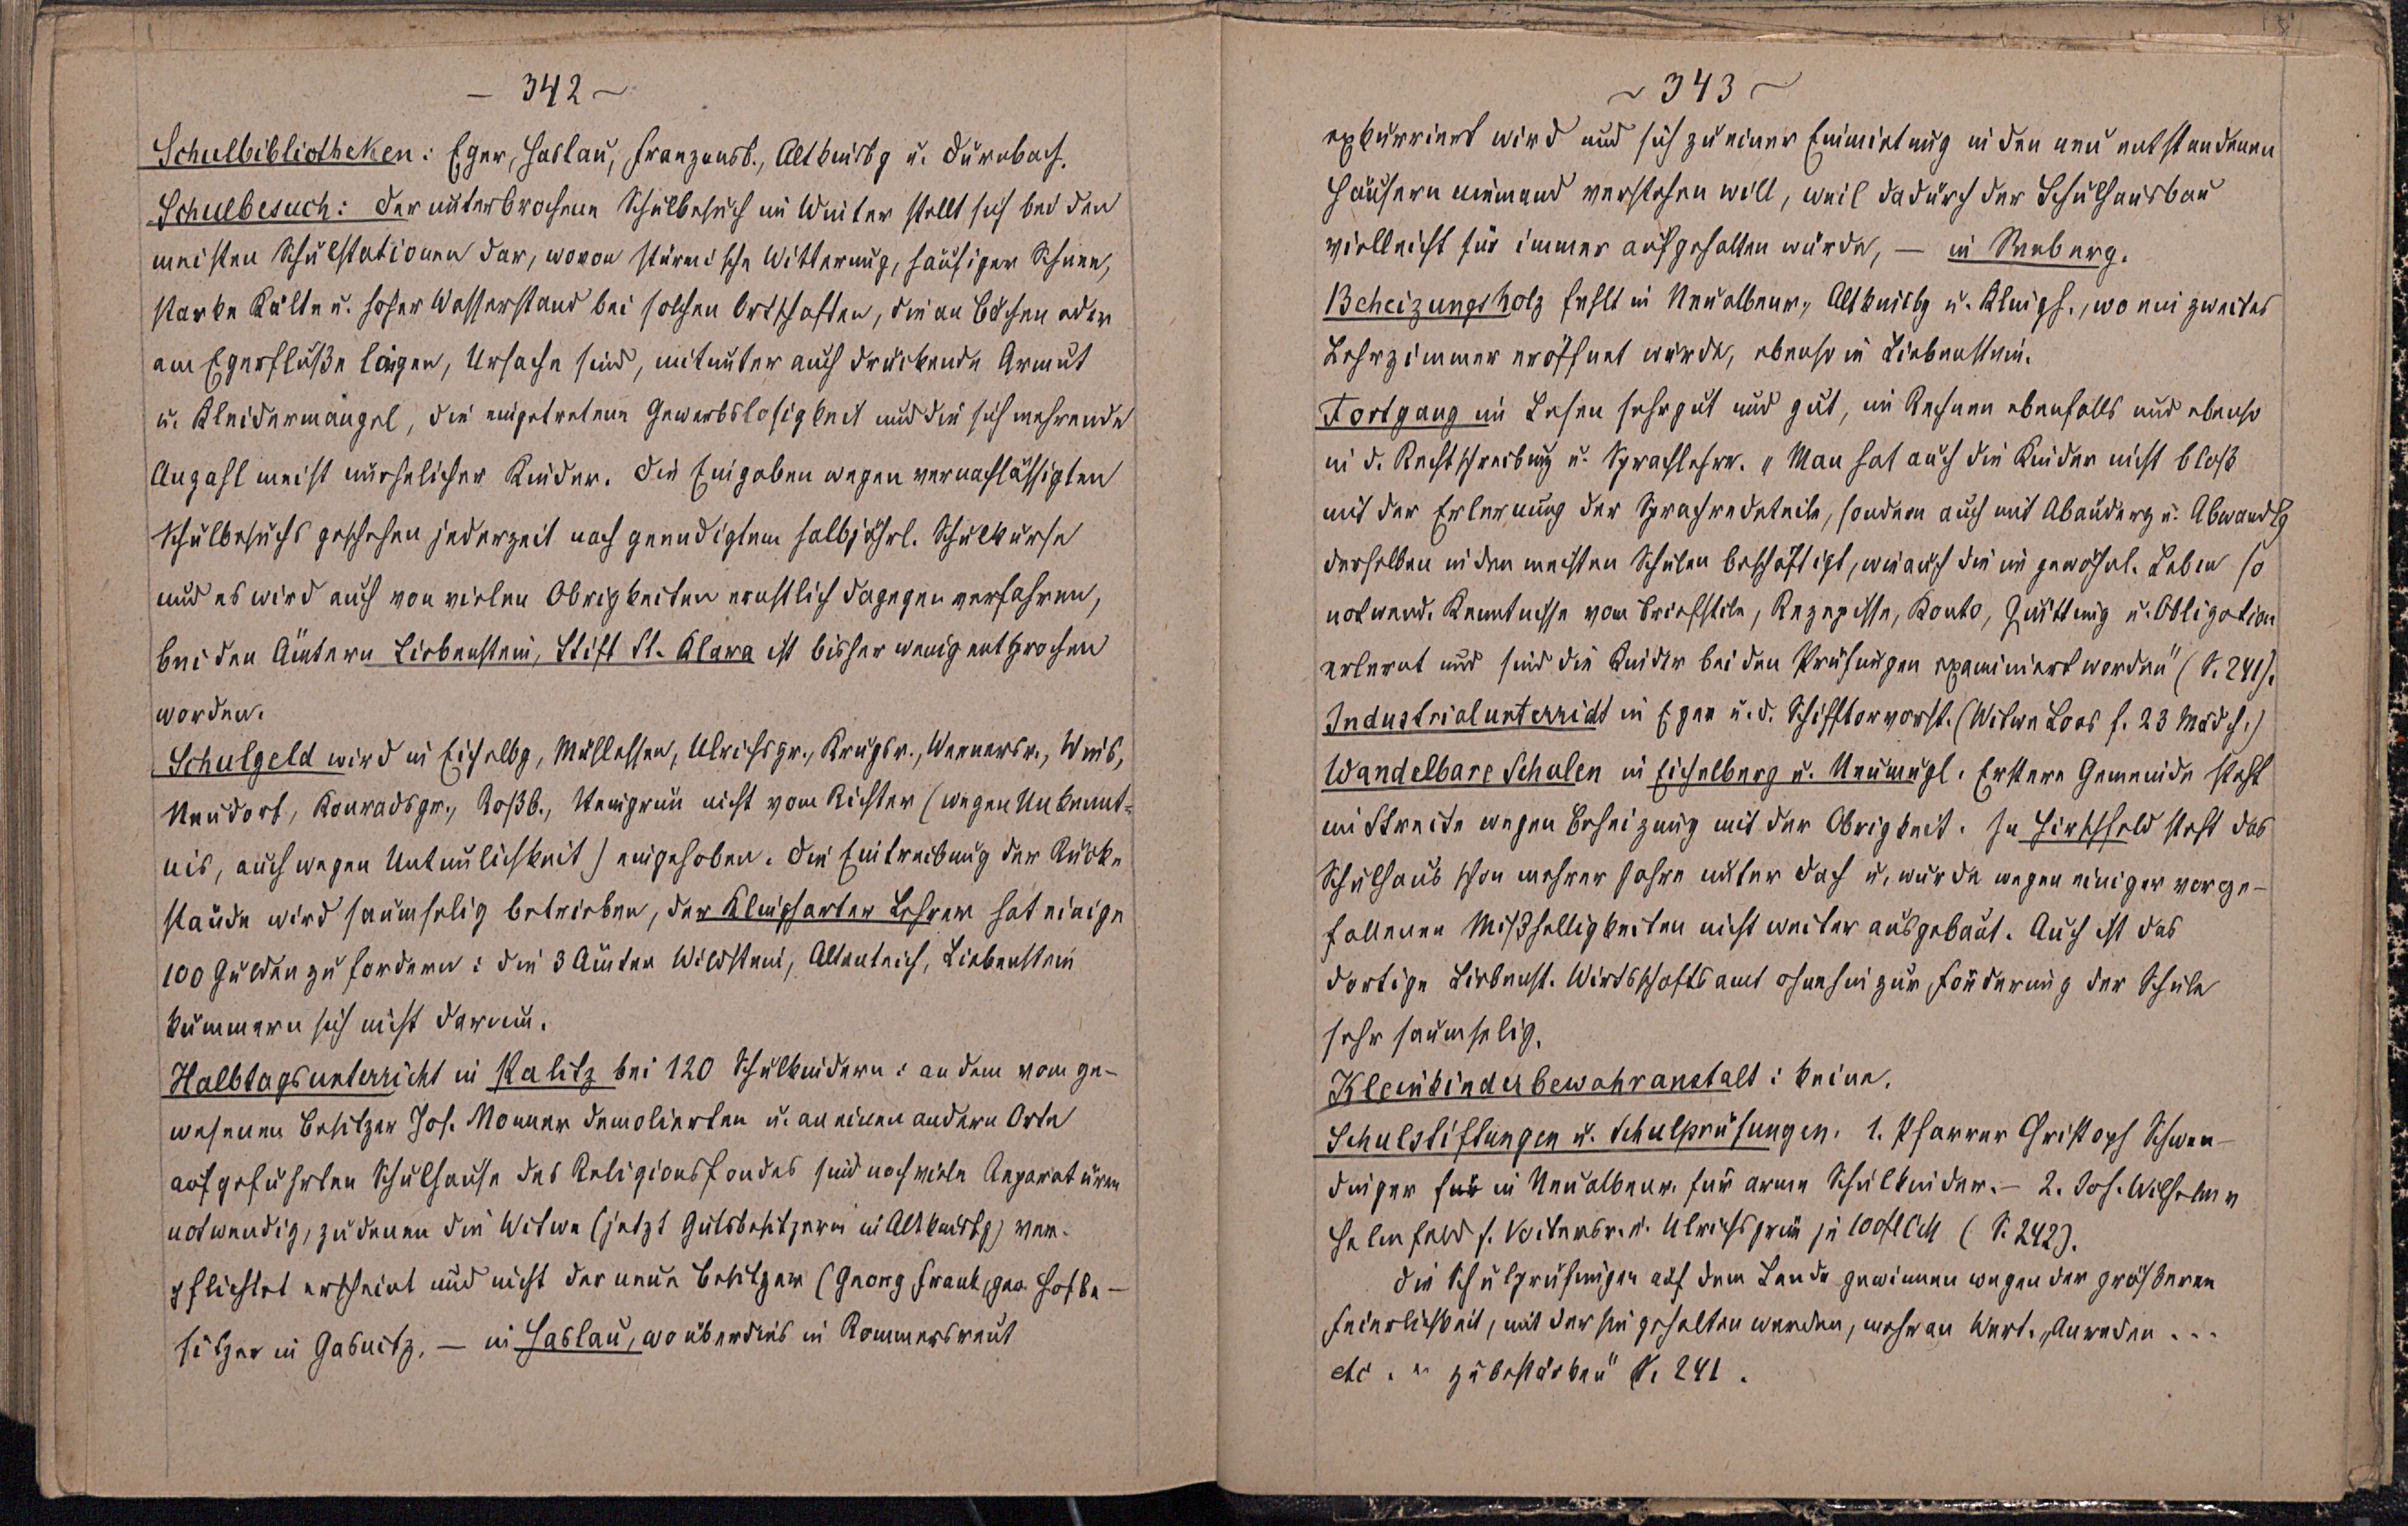 – 342 ~
Schulbibliotheken: Eger, Haslau, Franzensb., Altkinsbg u. Dürnbach.
Schulbesuch: Der unterbrochene Schulbesuch im Winter stellt sich bei den
meisten Schulstationen dar, wovon stürmische Witterung, häufiger Schnee,
starke Kälte u. hoher Wasserstand bei solchen Ortschaften, die an Bächen oder
am Egerfluße liegen, Ursache sind, mitunter auch drückende Armut
u. Kleidermangel, die eingetretene Gewerbslosigkeit und die sich mehrende
Anzahl meist unehelicher Kinder. Die Eingaben wegen vernachlässigten
Schulbesuchs geschehen jederzeit nach geendigtem halbjährl. Schulkurse
und es wird auch von vielen Obrigkeiten ernstlich dagegen verfahren,
bei den Ämtern Liebenstein, Stift St. Klara ist bisher wenig entsprochen
worden.
Schulgeld wird in Eichelbg, Mühlessen, Ulrichsgr., Krugsr., Wernersr., Wies,
Neudorf, Konradsgr., Roßb., Steingrün nicht vom Richter (wegen Unkennt-
nis, auch wegen Untunlichkeit) eingehoben. Die Eintreibung der Rück-
stände wird saumselig betrieben, der Klinsharter Lehrer hat einige
100 Gulden zu fordern: die 3 Ämter Wildstein, Altenteich, Liebenstein
kümmern sich nicht darum.
Halbtagsunterricht in Palitz bei 120 Schulkindern: an dem vom ge-
wesenen Besitzer Jos. Monner demolierten u. an einem andern Orte
aufgeführten Schulhause des Religionsfondes sind noch viele Reparaturen
notwendig, zu denen die Witwe (jetzt Gutsbesitzerin in Altkinsbg) ver-
pflichtet erscheint und nicht der neue Besitzer (Georg Frank, gew. Hofbe-
sitzer in Gasnitz. – in Haslau, wo überdies in Rommersreut
~ 343 ~
exkurriert wird und sich zu einer Einmietung in den neu entstandenen
Häusern niemand verstehen will, weil dadurch der Schulhausbau
vielleicht für immer aufgehalten würde, – in Seeberg.
Beheizungsholz fehlt in Neualbenr., Altkinsbg u. Klinsh., wo ein zweites
Lehrzimmer eröffnet wurde, ebenso in Liebenstein.
Fortgang im Lesen sehr gut und gut, im Rechnen ebenfalls und ebenso
in d. Rechtschreibung u. Sprachlehre. „Man hat auch die Kinder nicht bloß
mit der Erlernung der Sprachredeteile, sondern auch mit Abänderg u. Abwandlg
derselben in den meisten Schulen beschäftigt, wie auch die im gewöhnl. Leben so
notwend. Kenntnisse vom Briefstile, Rezepisse, Konto, Quittung u. Obligation
erlernt und sind die Kinder bei den Prüfungen examiniert worden" (S. 241).
Industrialunterricht in Eger u. d. Schifftorvorst. (Witwe Loos f. 23 Mädch.)
Wandelbare Schulen in Eichelberg u. Neumugl. Erstere Gemeinde steht
im Streite wegen Beheizung mit der Obrigkeit. In Hirschfeld steht das
Schulhaus schon mehrer Jahre unter Dach u. wurde wegen einiger vorge-
fallenen Mißhelligkeiten nicht weiter ausgebaut. Auch ist das
dortige Liebenst. Wirtschaftsamt ohnehin zur Förderung der Schule
sehr saumselig.
Kleinkinderbewahranstalt: keine.
Schulstiftungen u. Schulprüfungen. 1. Pfarrer Christoph Schwen-
dinger für in Neualbenr. für arme Schulkinder. – 2. Jos. Wilhelm v
Helmfeld f. Voitersr. u. Ulrichsgrün je 100fl CM (S. 242).
Die Schulprüfungen auf dem Lande gewinnen wegen der größeren
Feierlichkeit, mit der sie gehalten werden, mehr an Wert. „Anreden . . .
etc. . . zu bestärken" S. 241.